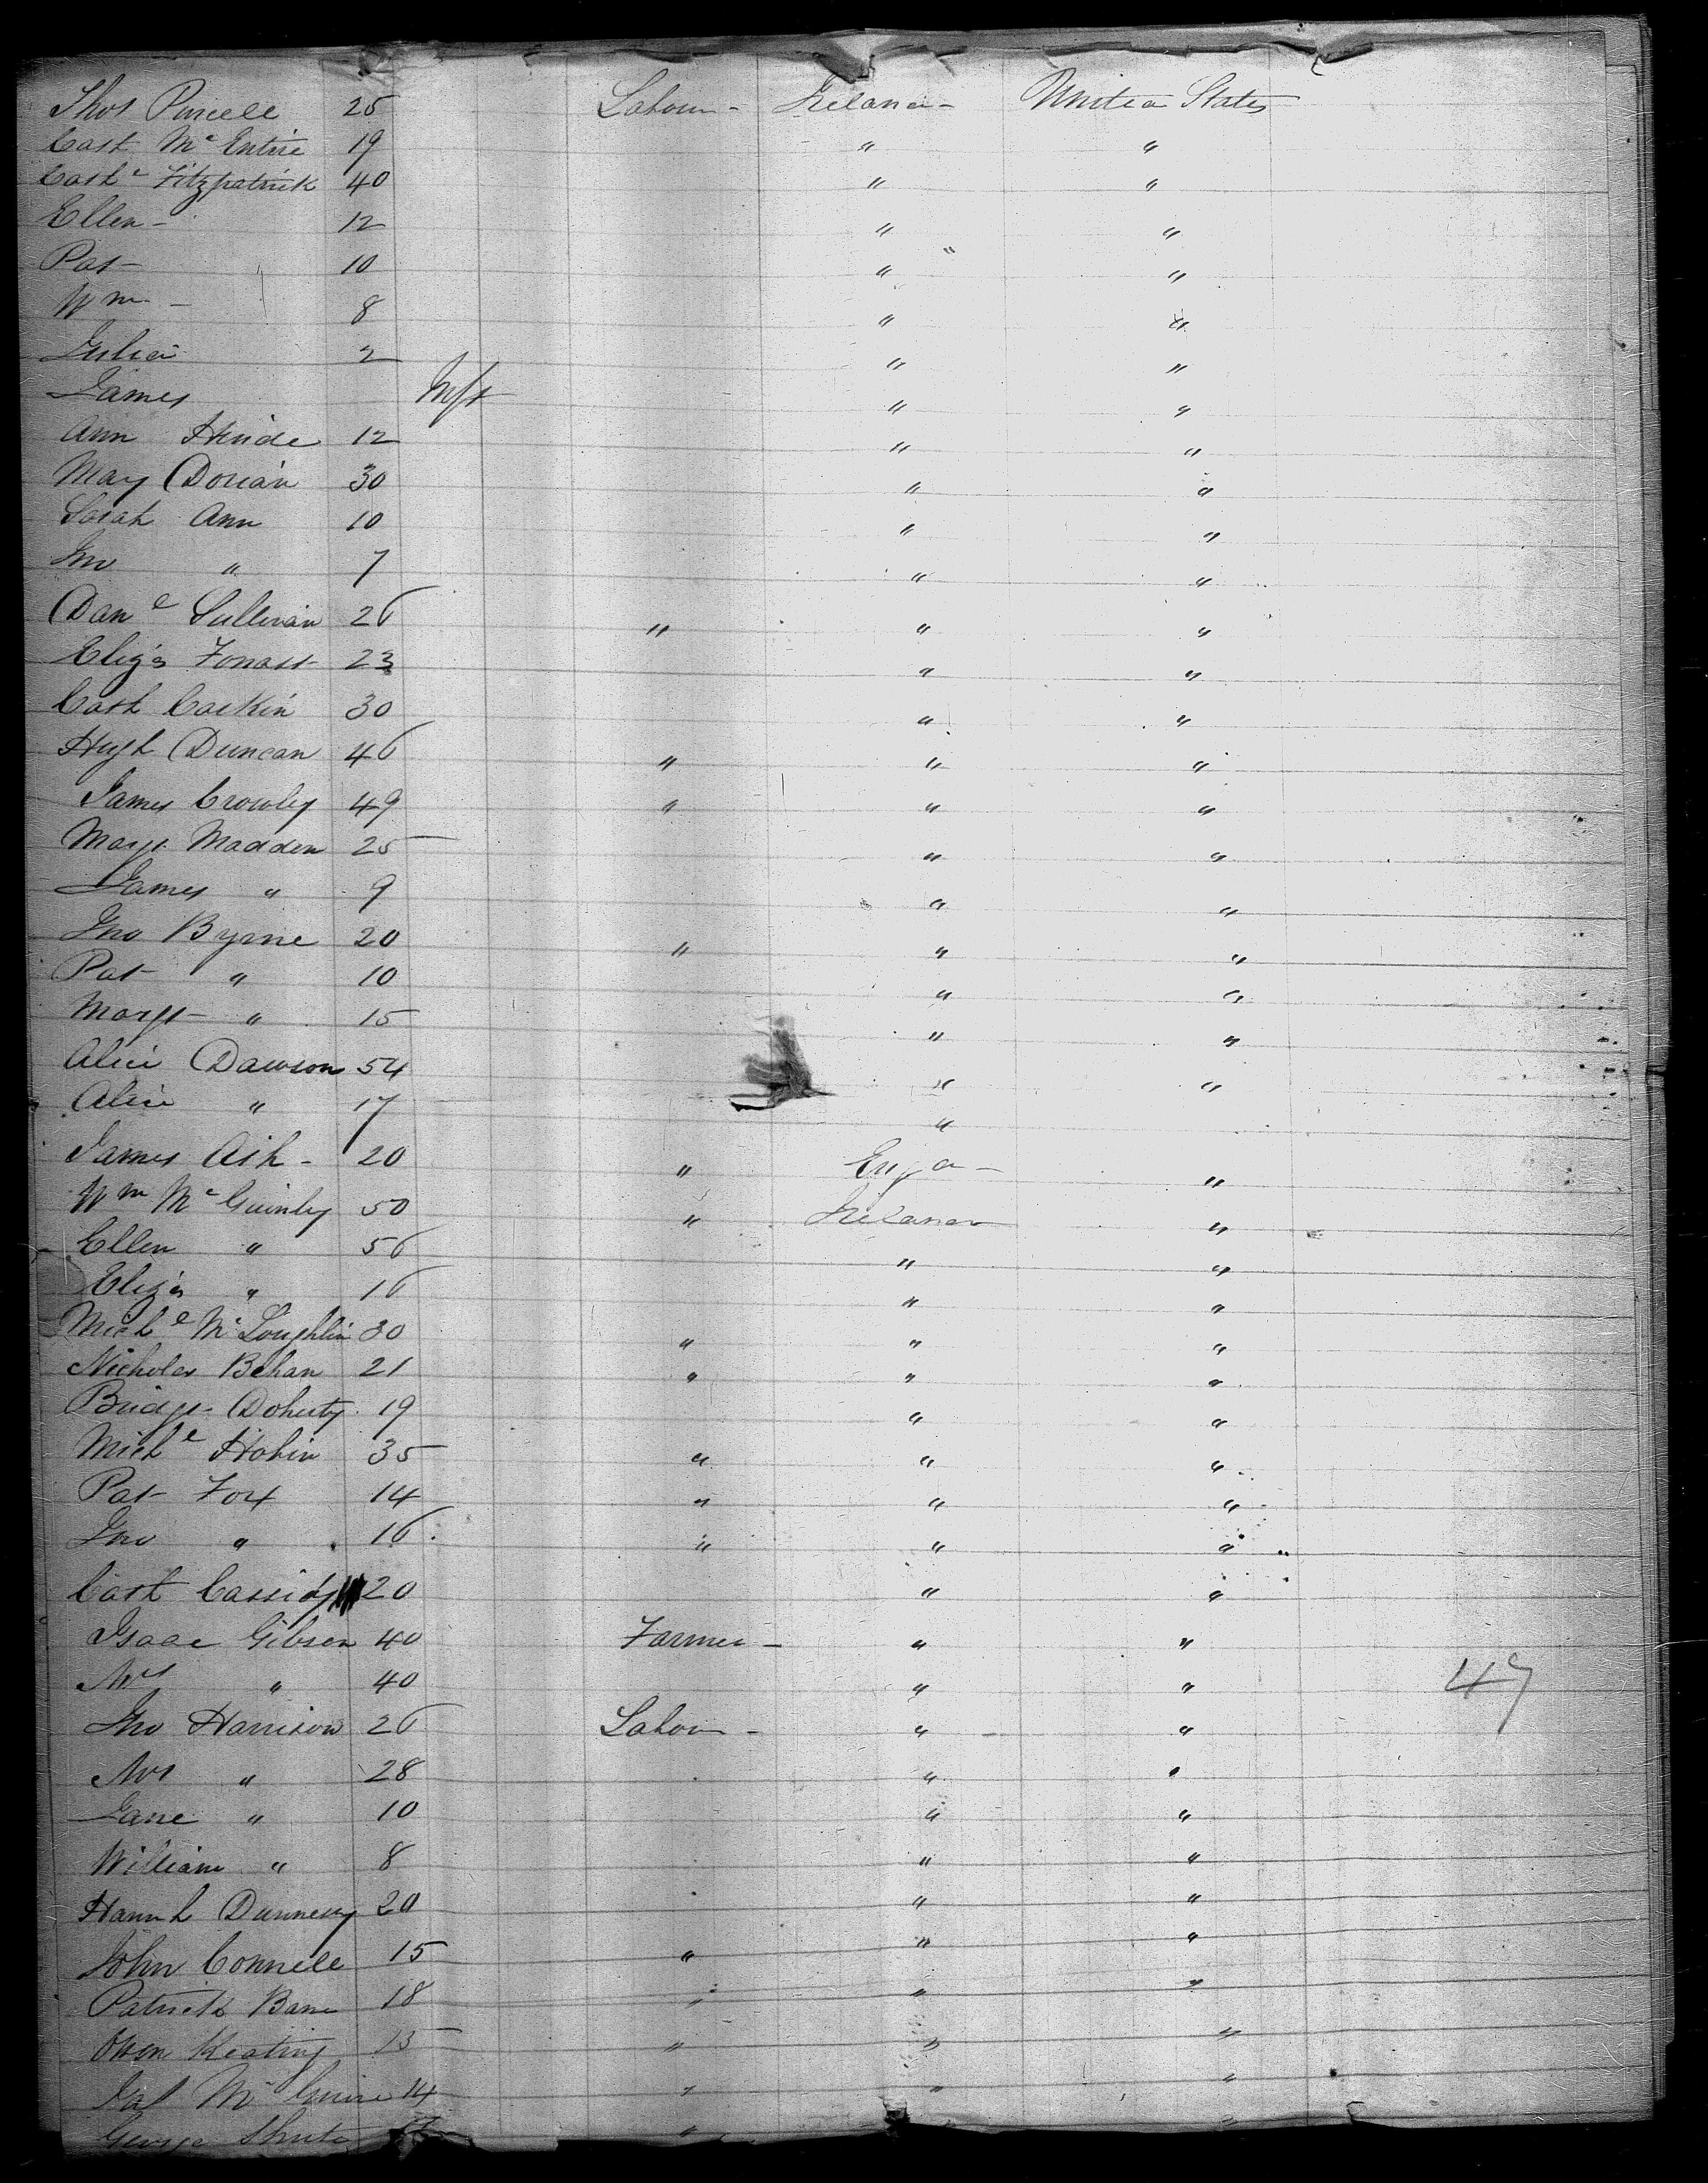 Thos Purcell 25 Labour - Ireland - United States
Cath McEntire 19 " "
Cathe Fitzpatrick 40 " "
Ellen - 12 " "
Pat - 10 " "
Wm - 8 " "
Julia 2 " "
James Inft " "
Ann 12 " "
Mary Dorian 30 " "
Sarah Ann 10 " "
Jno " 7 " "
Danl Sullivan 26 " " "
Eliza 23 " "
Cath 30 " "
Hugh Duncan 46 " " "
James Crowley 49 " " "
Margt Madden 25 " "
James " 9 " "
Jno Byrne 20 " " "
Pat " 10 " "
Margt " 15 " "
Alice Dawson 54 " "
Alice " 17 "
James Ash - 20 " Engd - "
Wm McGuinley 50 " Ireland "
Ellen " 56 " "
Eliza " 16 " "
Michl McLoughlin 30 " " "
Nicholas Behan 21 " " "
Bridgt Doherty 19 " "
Michl Hobin 35 " " "
Pat Fox 14 " " "
Jno " 16 " " "
Cath Cassidy 20 " "
Isaac Gibson 40 Farmer - " "
Mrs " 40 " " 47
Jno Harrison 26 Labour - " "
Mrs " 28 " "
Jane " 10 " "
William " 8 " "
Hannh 20 " "
John Connell 15 " " "
Patrick Bane 18 " " "
Owen Keating 15 " " "
McGuire 14 " " "
George Shute " " "